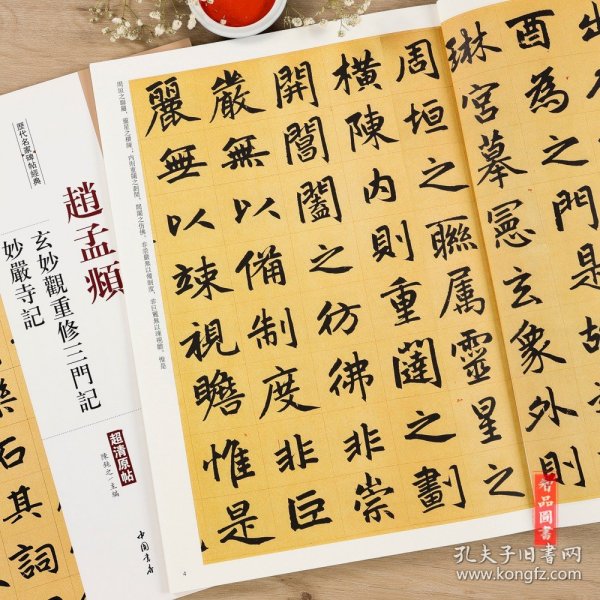 出
酉為之門是
琳宮摹憲玄象外則
周垣之聯屬靈星之
橫陳內則重闥之劃
開閶闔之彷彿非崇
嚴無以備制度非巨
麗無以竦視瞻惟是
周垣之聯屬,靈星之橫陳;內則重闥之劃開,閶闔之彷彿。非崇嚴無以備制度,非巨麗無以竦視瞻。惟是
4
歷代名家碑帖經典
趙孟頫
玄妙觀重修三門記
妙嚴寺記
超清原帖
陳鈍之/主編
中國書店
樂石其詞
智品圖書
孔夫子旧书网
www.kongfz.com